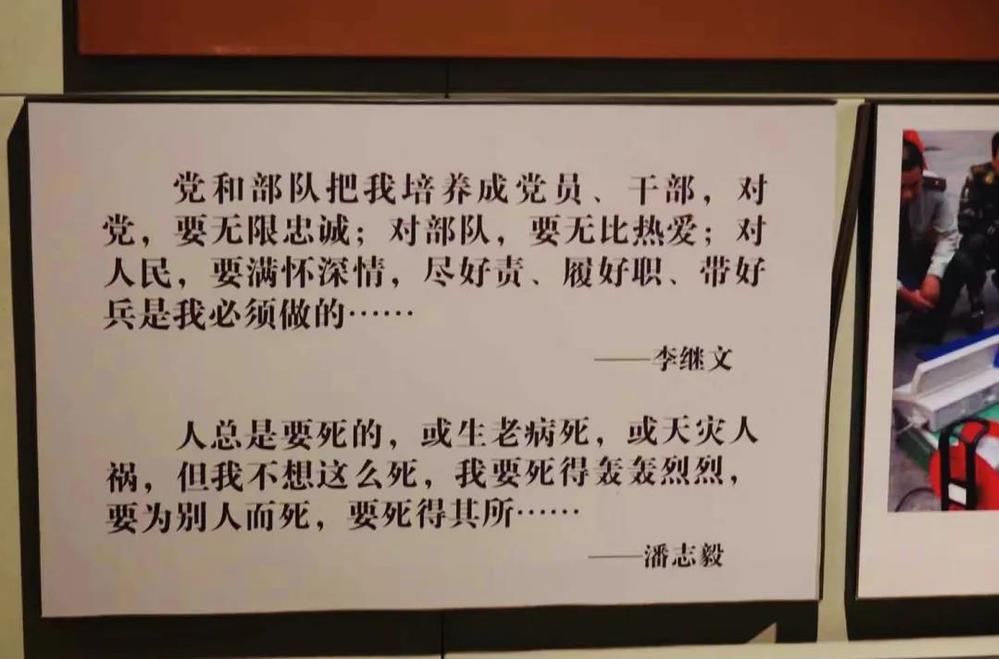 党和部队把我培养成党员、干部，对
党，要无限忠诚；对部队，要无比热爱；对
人民，要满怀深情，尽好责、履好职、带好
兵是我必须做的……
——李继文
人总是要死的，或生老病死，或天灾人
祸，但我不想这么死，我要死得轰轰烈烈，
要为别人而死，要死得其所……
——潘志毅